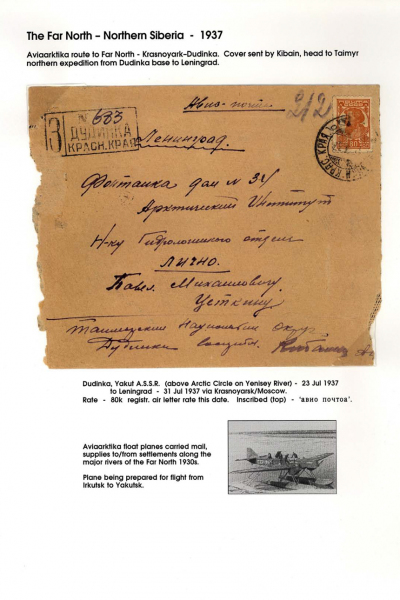 The Far North – Northern Siberia - 1937
Aviaarktika route to Far North - Krasnoyark–Dudinka. Cover sent by Kibain, head to Taimyr
northern expedition from Dudinka base to Leningrad.
Авиа-почта
212
З
№ 683
ДУДИНКА
КРАСН. КРАЯ
Ленинград.
Фонтанка дом № 34
Арктический Институт
Н-ку Гидрологического отдела
Лично.
Павел Михайловичу
Усткину
Таймырский Национальн Округ
Дудинка
Dudinka, Yakut A.S.S.R. (above Arctic Circle on Yenisey River) - 23 Jul 1937
to Leningrad - 31 Jul 1937 via Krasnoyarsk/Moscow.
Rate - 80k registr. air letter rate this date. Inscribed (top) - 'авио почтов'.
Aviaarktika float planes carried mail,
supplies to/from settlements along the
major rivers of the Far North 1930s.
Plane being prepared for flight from
Irkutsk to Yakutsk.